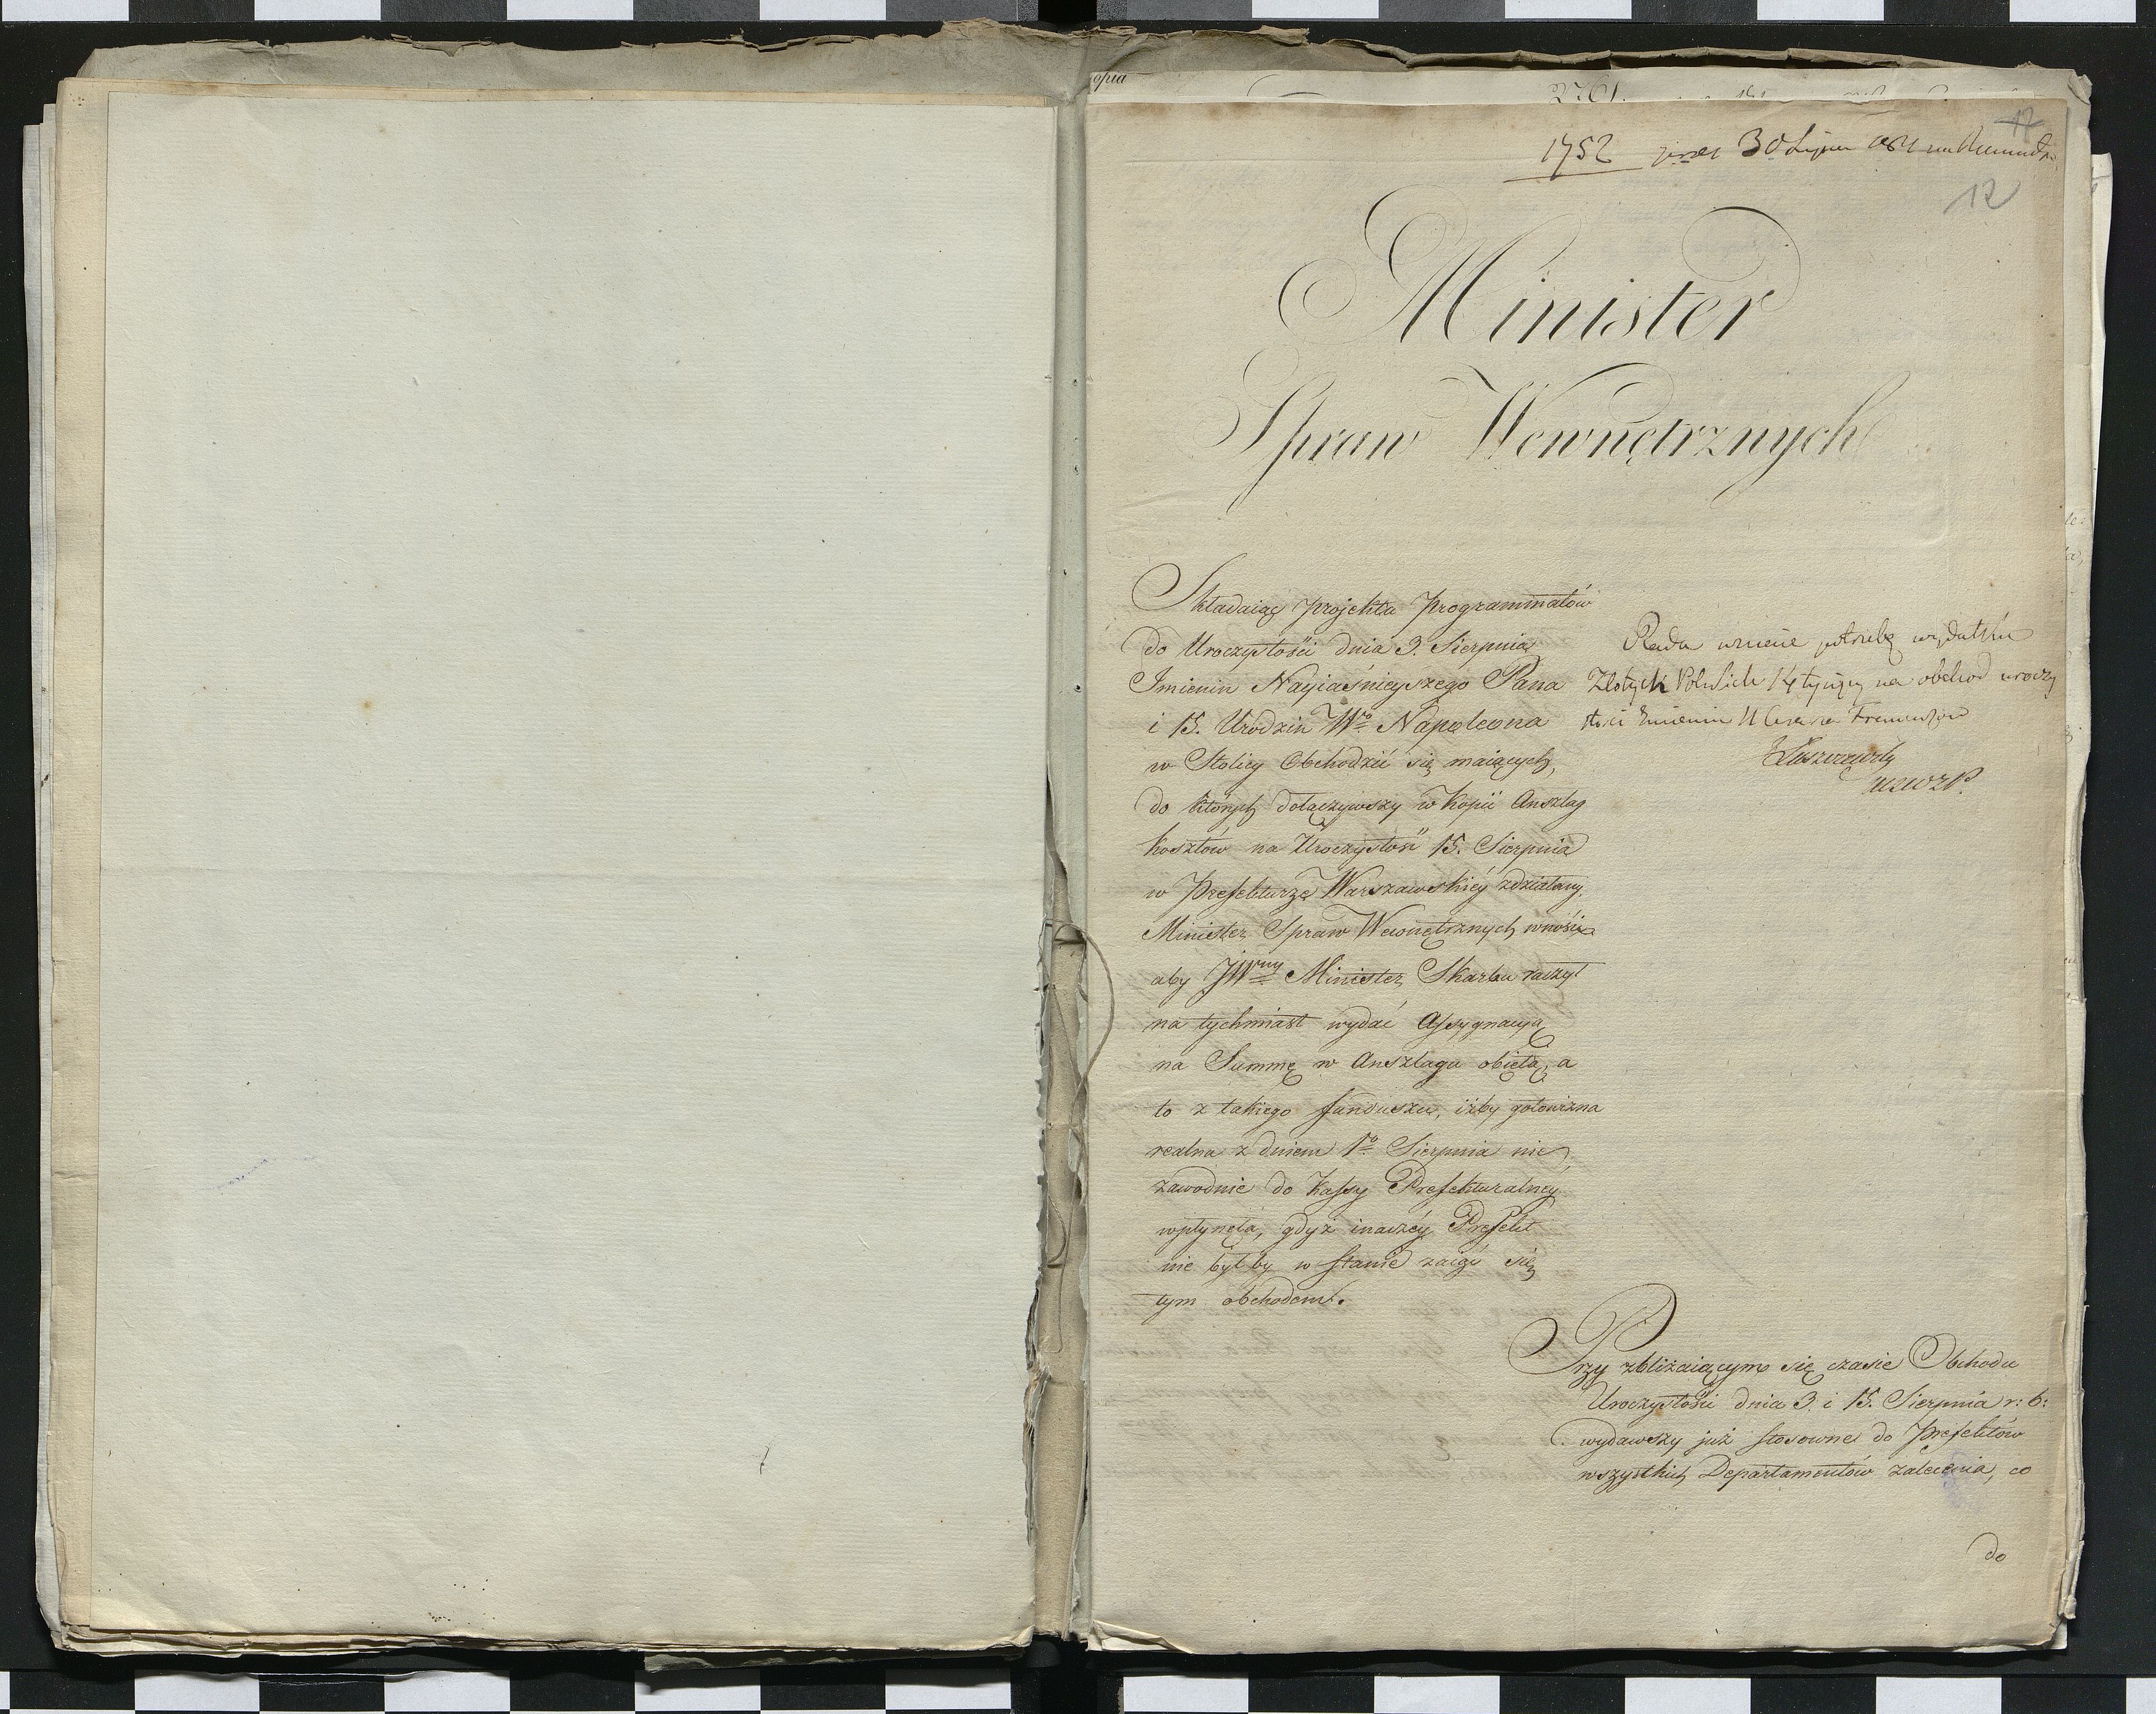 opia
2761.
1752 przez 30 Lipca
12
12
Minister
Spraw Wewnętrznych
Składaiąc projekta Programmatów
do Uroczystości dnia 3. Sierpnia
Imienin Nayiaśnieyszego Pana
i 15. Urodzin Wgo Napoleona
w Stolicy Obchodzić się maiących,
do których dołączywszy w Kopii Anszlag
kosztów na Uroczystość 15. Sierpnia
w Prefekturze Warszawskiéy zdziałany.
Minister Spraw Wewnętrznych wnosi
aby JWny Minister Skarbu raczył
na tychmiast wydać Assygnacyą
na Summę w Anszlagu obiętą, a
to z takiego funduszu, iżby gotowizna
realna z dniem 1o Sierpnia nie
zawodnie do Kassy Prefekturalnéy
wpłynęła, gdyż inaczéy Prefekt
nie był by w stanie zaiąć się
tym obchodem.
Rada uznaie potrzebę wydatku
Złotych Polskich 14 tysięcy na obchod uroczy
stości Imienin N Cesarza Francuzów
Łuszczewski
Przy zbliżaiącym się czasie Obchodu
Uroczystości dnia 3. i 15. Sierpnia r: b:
wydawszy już stosowne do Prefektów
wszystkich Departamentów zalecenia, co
do